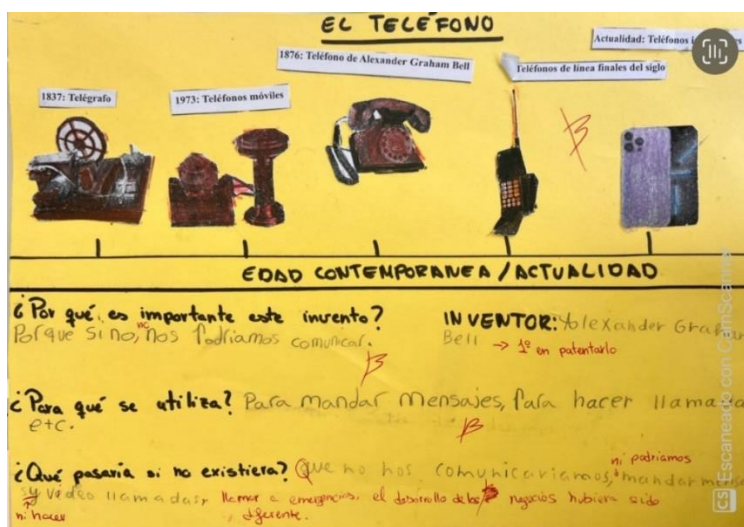 EL TELÉFONO
Actualidad: Teléfonos
1876: Teléfono de Alexander Graham Bell
Teléfonos de línea finales del siglo
1837: Telégrafo
1973: Teléfonos móviles
B
EDAD CONTEMPORANEA/ACTUALIDAD
¿Por qué es importante este invento?
Porque si no, no nos Podriamos comunicar.
B
INVENTOR: Alexander Graham
Bell → 1º en patentarlo
¿Para qué se utiliza? Para mandar mensajes, Para hacer llamada
etc.
B
¿Qué pasaría si no existiera? Que no nos comunicariamos, ni podriamos mandar mens
ni hacer video llamadas, llamar a emergencias. el desarrollo de los negocios hubiera sido
diferente.
CS Escaneado con CamScanner